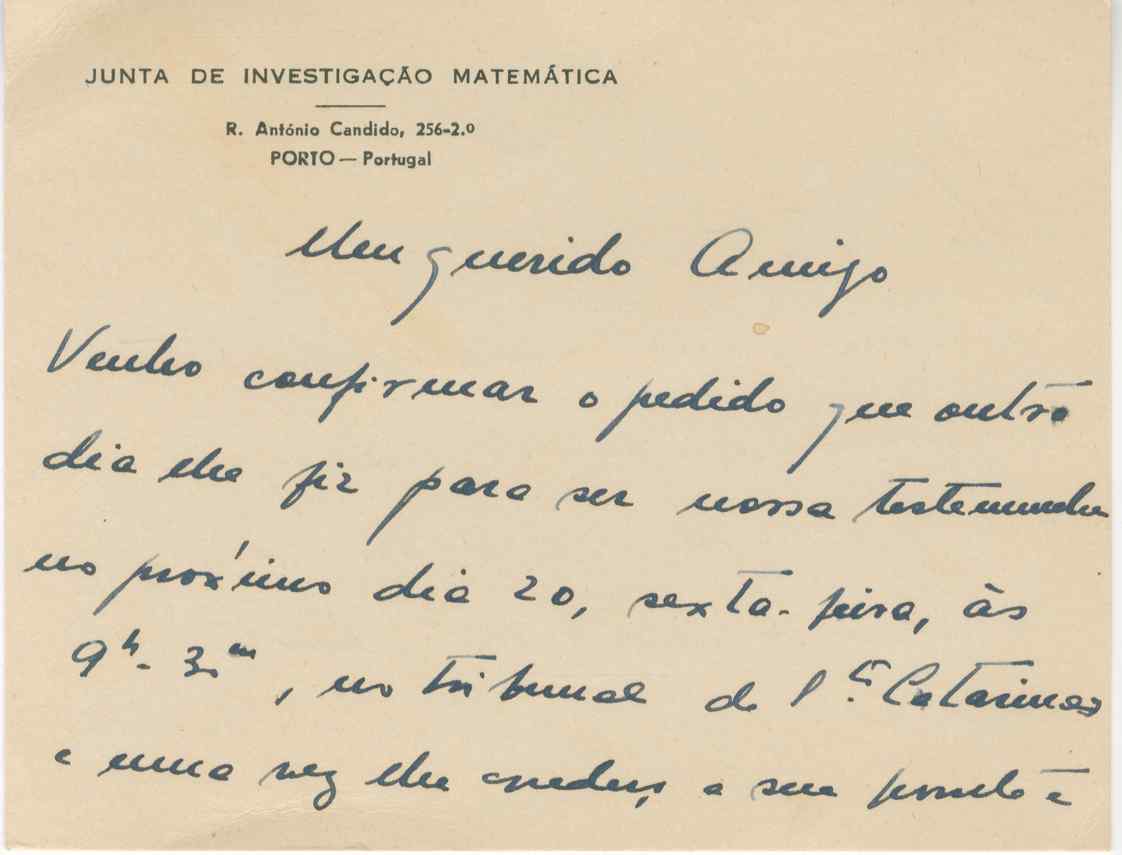 JUNTA DE INVESTIGAÇÃO MATEMÁTICA
R. António Candido, 256-2.º
PORTO — Portugal
Meu querido Amigo
Venho confirmar o pedido que outro
dia lhe fiz para ser nossa testemunha
no próximo dia 20, sexta-feira, às
9h-30m, no tribunal de S.ta Catarina
e uma vez lhe a sua